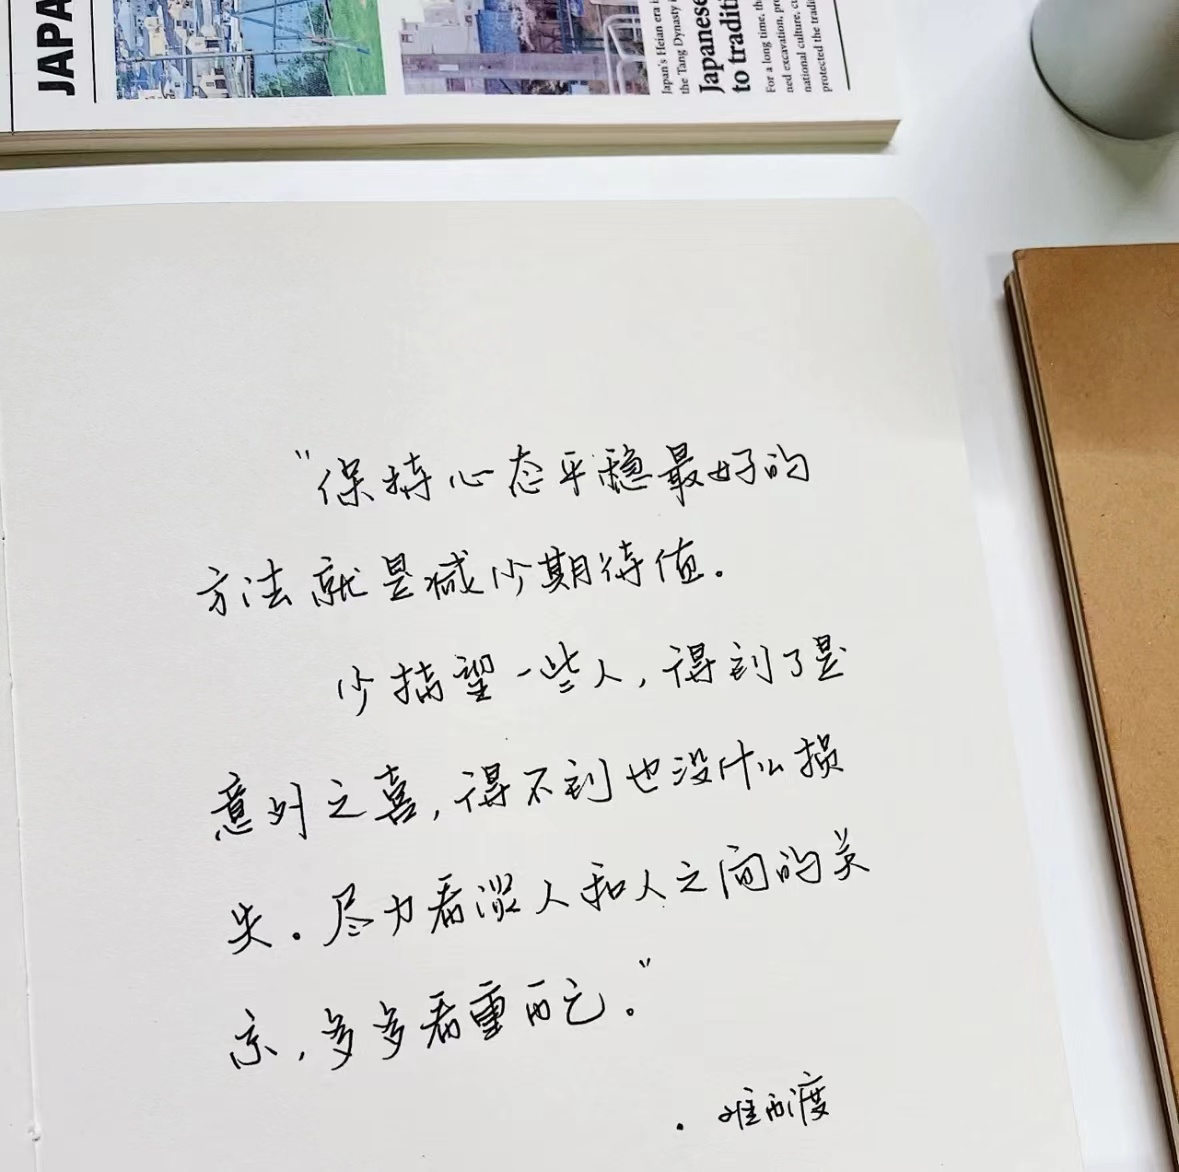 JAPA
Japan's Heian era i
the Tang Dynasty
Japanese
to traditi
For a long time, th
ned excavation, pre
national culture, cu
protected the tradi
"保持心态平稳最好的
方法就是减少期待值.
少指望一些人,得到了是
意外之喜,得不到也没什么损
失.尽力看淡人和人之间的关
系,多多看重而已."